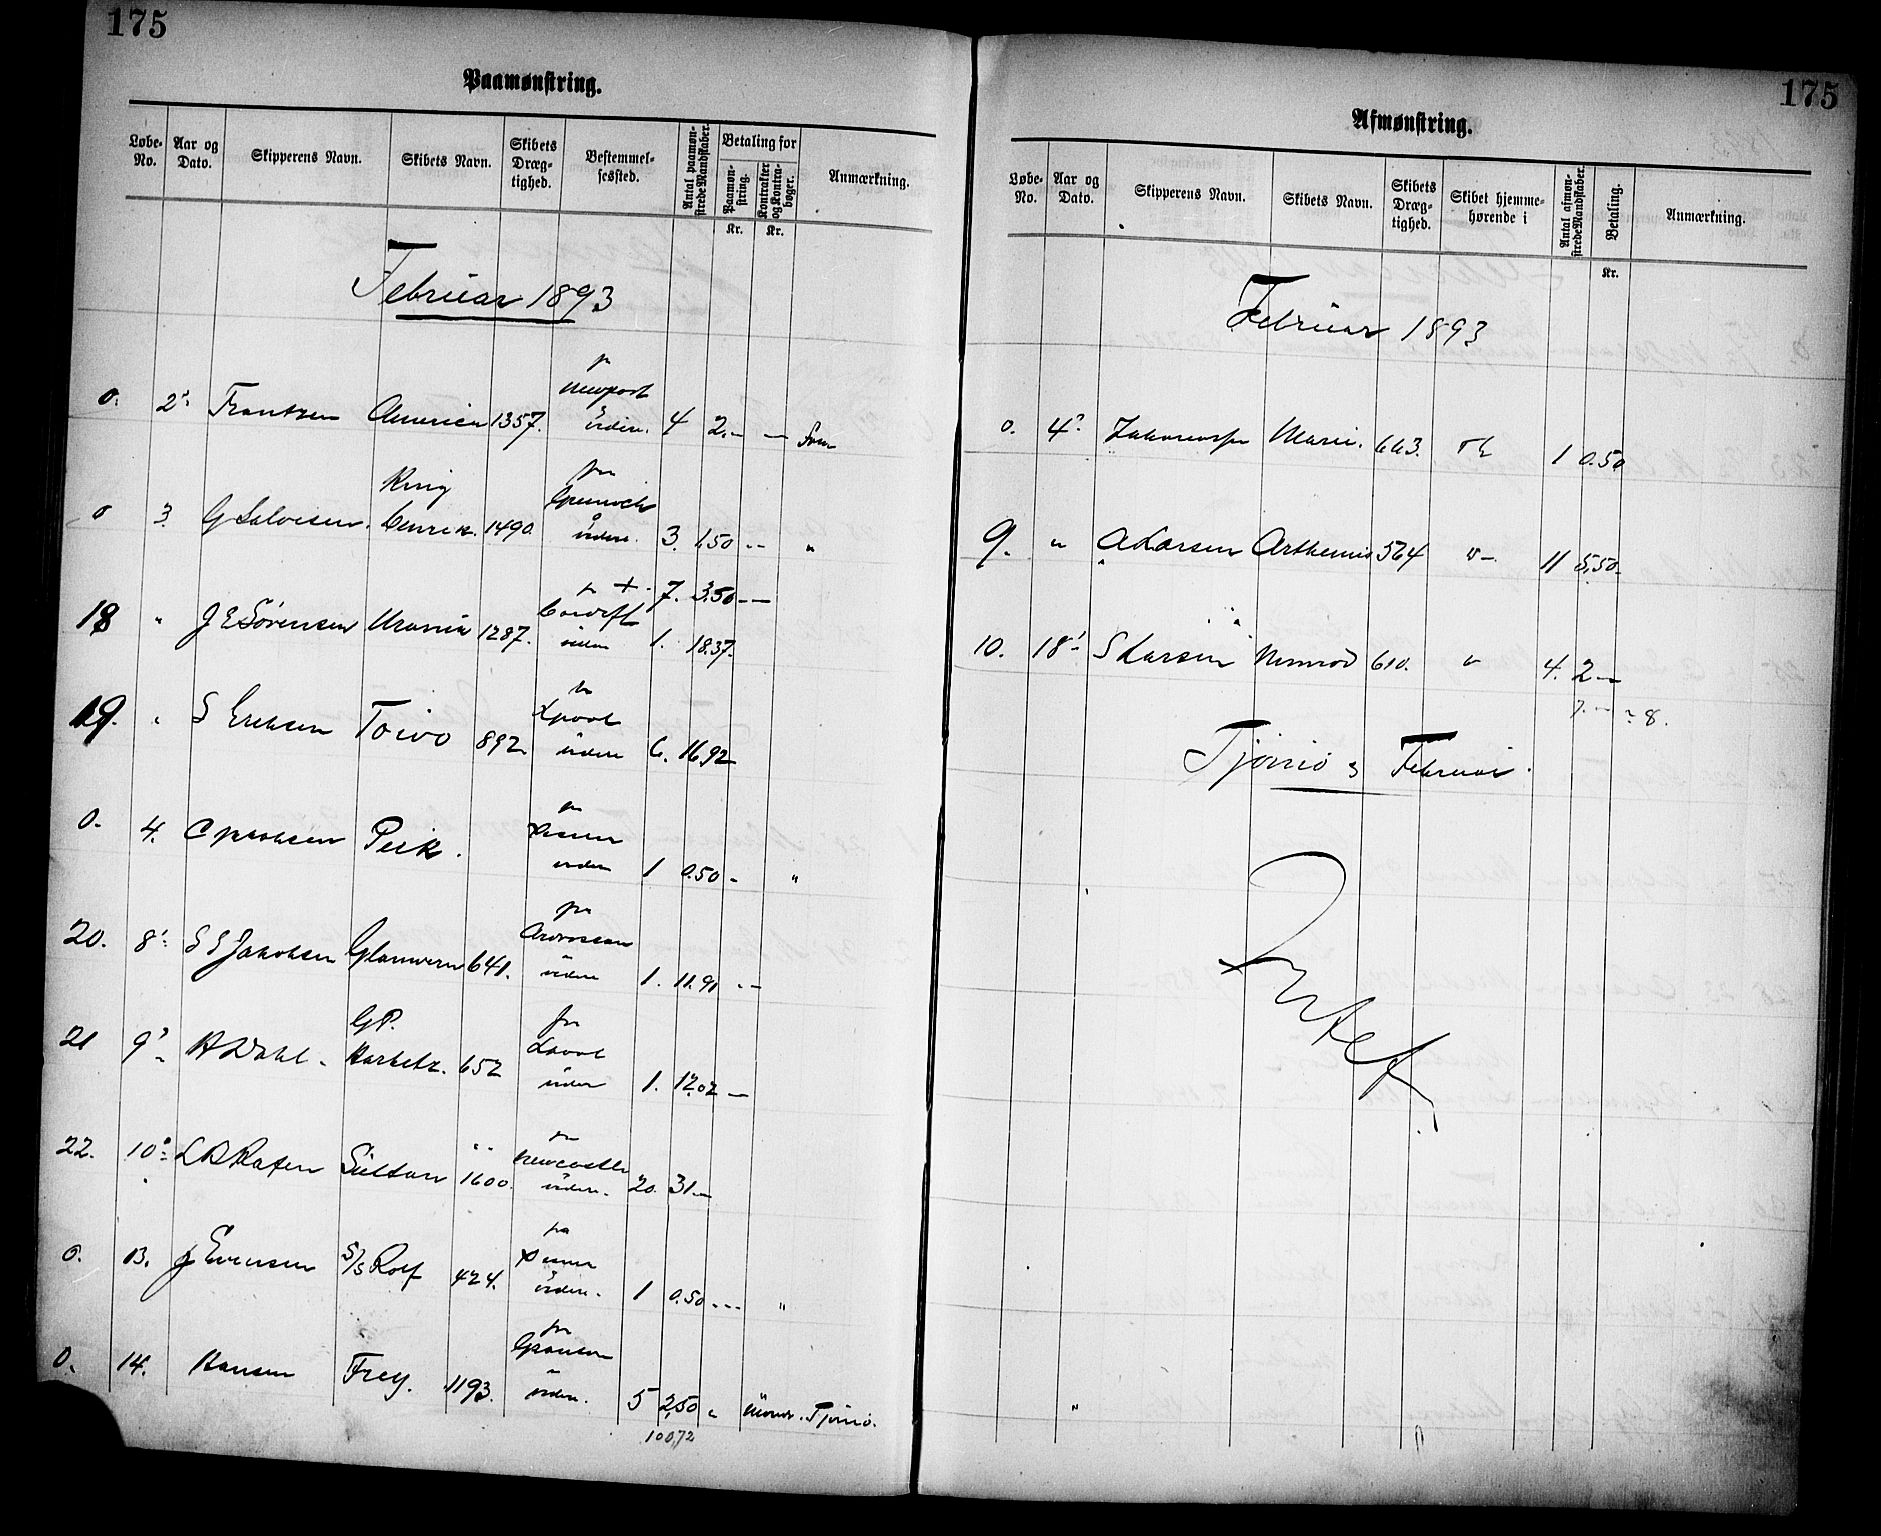 175
Paamønstring.
Løbe-No. Aar og Dato. Skipperens Navn. Skibets Navn. Skibets Dræg-tighed. Bestemmel-sessted. Antal paamøn-strede Mandskaber. Betaling for Paamøn-string. Kontrakter og Kontra-bøger. Anmærkning.
Kr. Kr.
Februar 1893
Newport
0. 2 Frantzen America 1357. videre. 4 2.— —
King
0 3. G Salvesen. Cenric. 1490. videre. 3. 1,50 -- "
7. 3.50 ——
18 " J E Sørensen Urania 1287. Cardiff videre 1. 18.37.
19. " S Eriksen Toivo 892 Lpool videre 6. 16.92
0. 4. C Jakobsen Peik. videre 1 0.50 - "
20. 8 S E Jakobsen Glamwern 641. Ardrossan videre 1. 11.91 --
G P.
21 9 A Dahl - Harbitz. 652 videre 1. 12.02 —
22. 10 L B Rafen Sultan 1600. Newcastle videre. 20. 31.—
0. 13. J Evensen S/S Rolf 424. videre. 1 0.50 --- "
0. 14. Hansen Frey. 1193. videre. 5 2,50 " Tjømø.
100,72
175
Afmønstring.
Løbe-No. Aar og Dato. Skipperens Navn. Skibets Navn. Skibets Dræg-tighed. Skibet hjemme-hørende i Antal afmøn-strede Mandskaber. Betaling. Anmærkning.
Kr.
Februar 1893
0. 4 Marie. 663. 1 0.50
9. " A Larsen Arthemis 564 11 5.50
10. 18 S Larsen Nimrod 610. " 4. 2—
8.
Tjømø Februar.